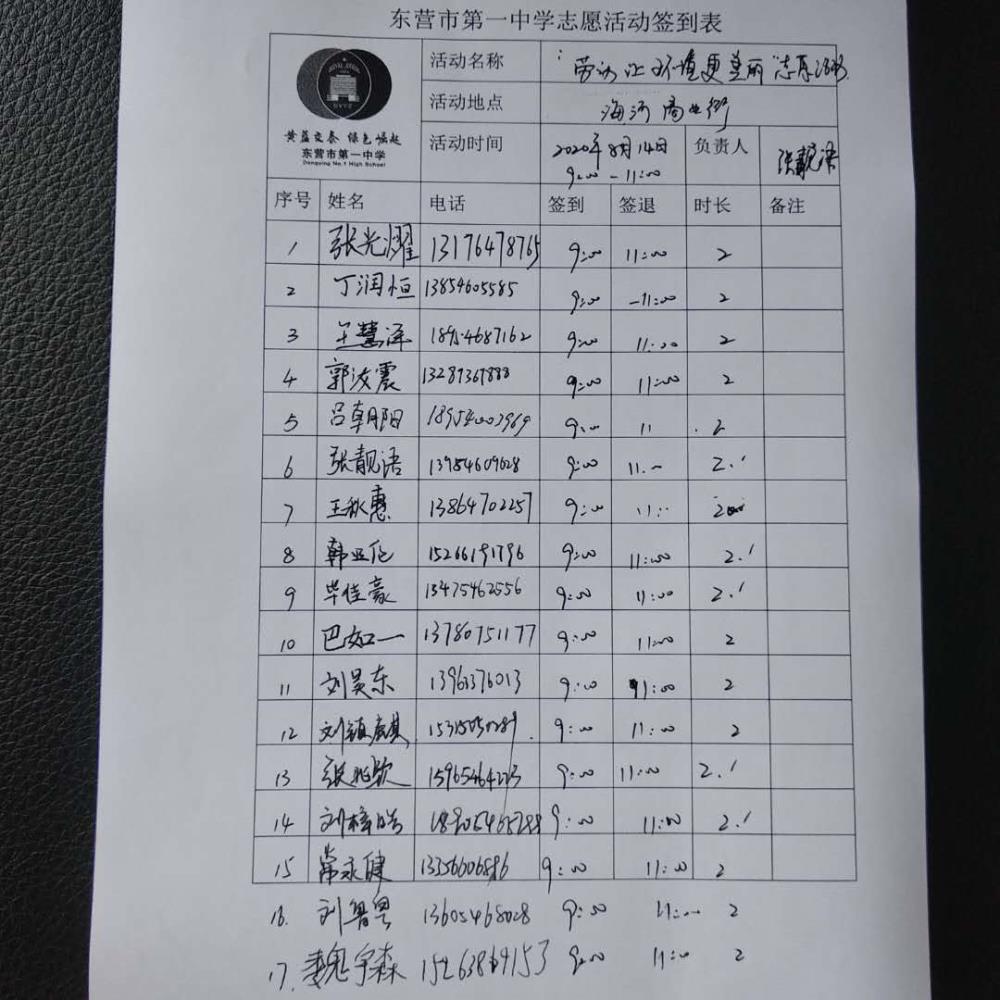 东营市第一中学志愿活动签到表
活动名称 劳动让环境更美丽 志愿活动
活动地点 海河商业街
黄蓝交泰 绿色崛起
东营市第一中学
Dongying No.1 High School
活动时间 2020年8月14日 9:00-11:00 负责人 张靓语
序号 姓名 电话 签到 签退 时长 备注
1 张光耀 13176478765 9:00 11:00 2
2 丁润恒 13854605585 9:00 -11:00 2
3 王慧泽 18954687162 9:00 11:00 2
4 郭汝震 9:00 11:00 2
5 吕朝阳 18954003969 9:00 11 2
6 张靓语 13954609628 9:00 11:00 2
7 王秋惠 13864702257 9:00 11:00 2
8 韩亚伦 15266191796 9:00 11:00 2
9 毕佳豪 13475462556 9:00 11:00 2
10 巴如一 13780751177 9:00 11:00 2
11 刘昊东 13963376013 9:00 11:00 2
12 9:00 11:00 2
13 9:00 11:00 2
14 刘梓皓 9:00 11:00 2
15 常永健 9:00 11:00 2
16. 13605468028 9:00 11:00 2
17. 魏宇森 9:00 11:00 2